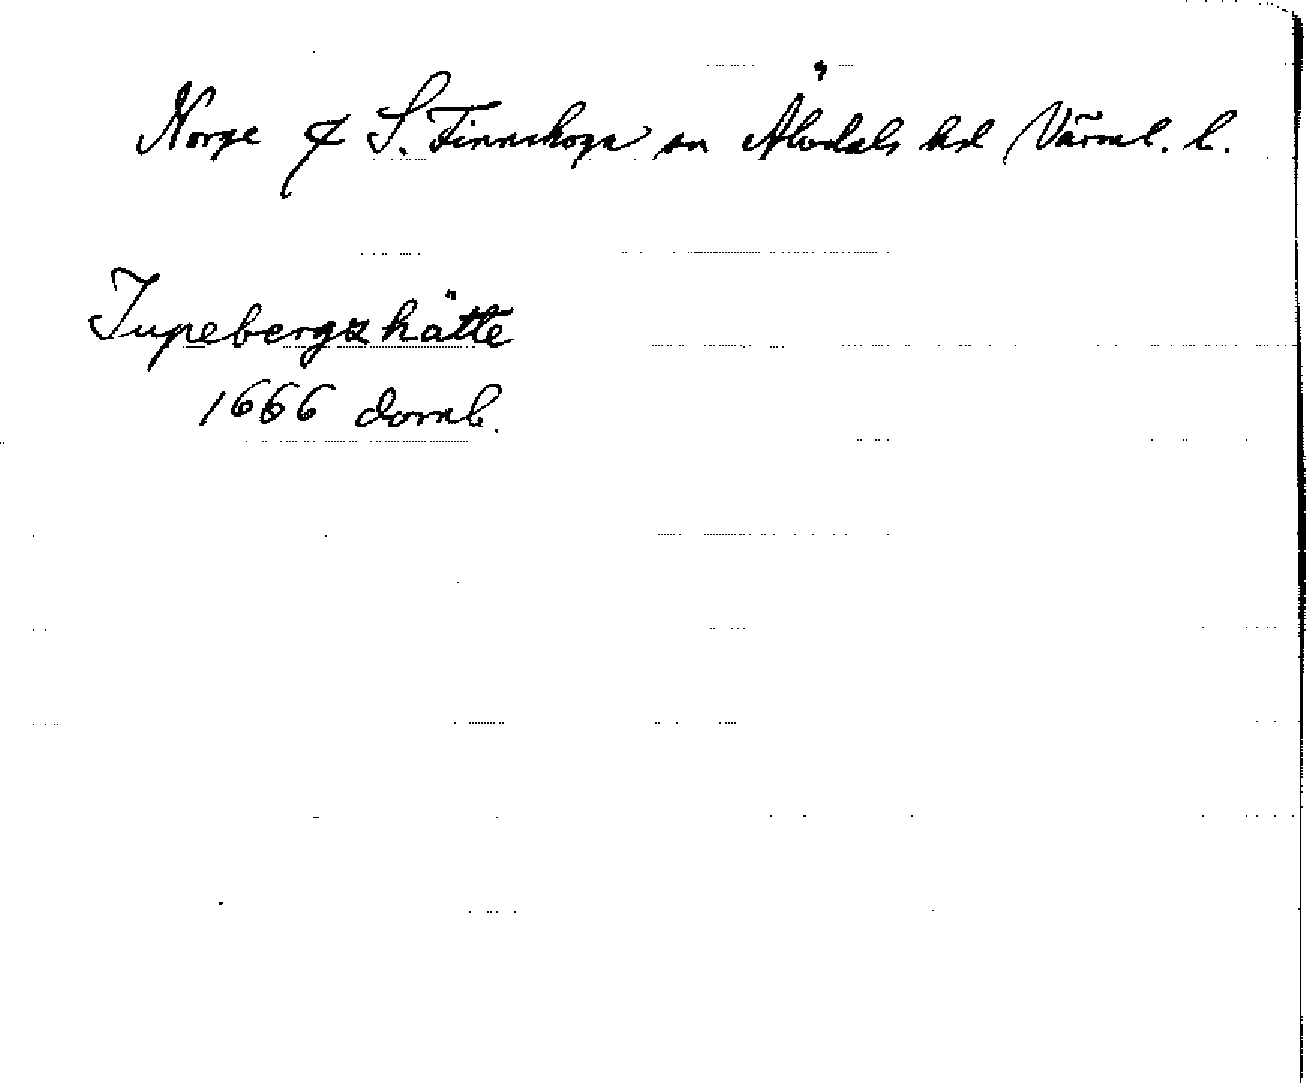 Norge & S. Finnskoga sn Älvdals hd Värml. l.
Jupebergzhätte
1666 domb.